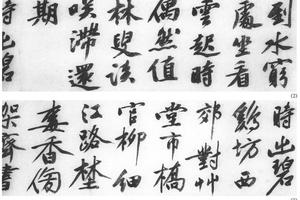 到水窮
處坐看
雲起時
偶然值
林叟談
咲滯還
期
時出碧
(2)
時出碧
鷄坊西
郊對艸
堂市橋
官柳細
江路埜
香傍
架齊書